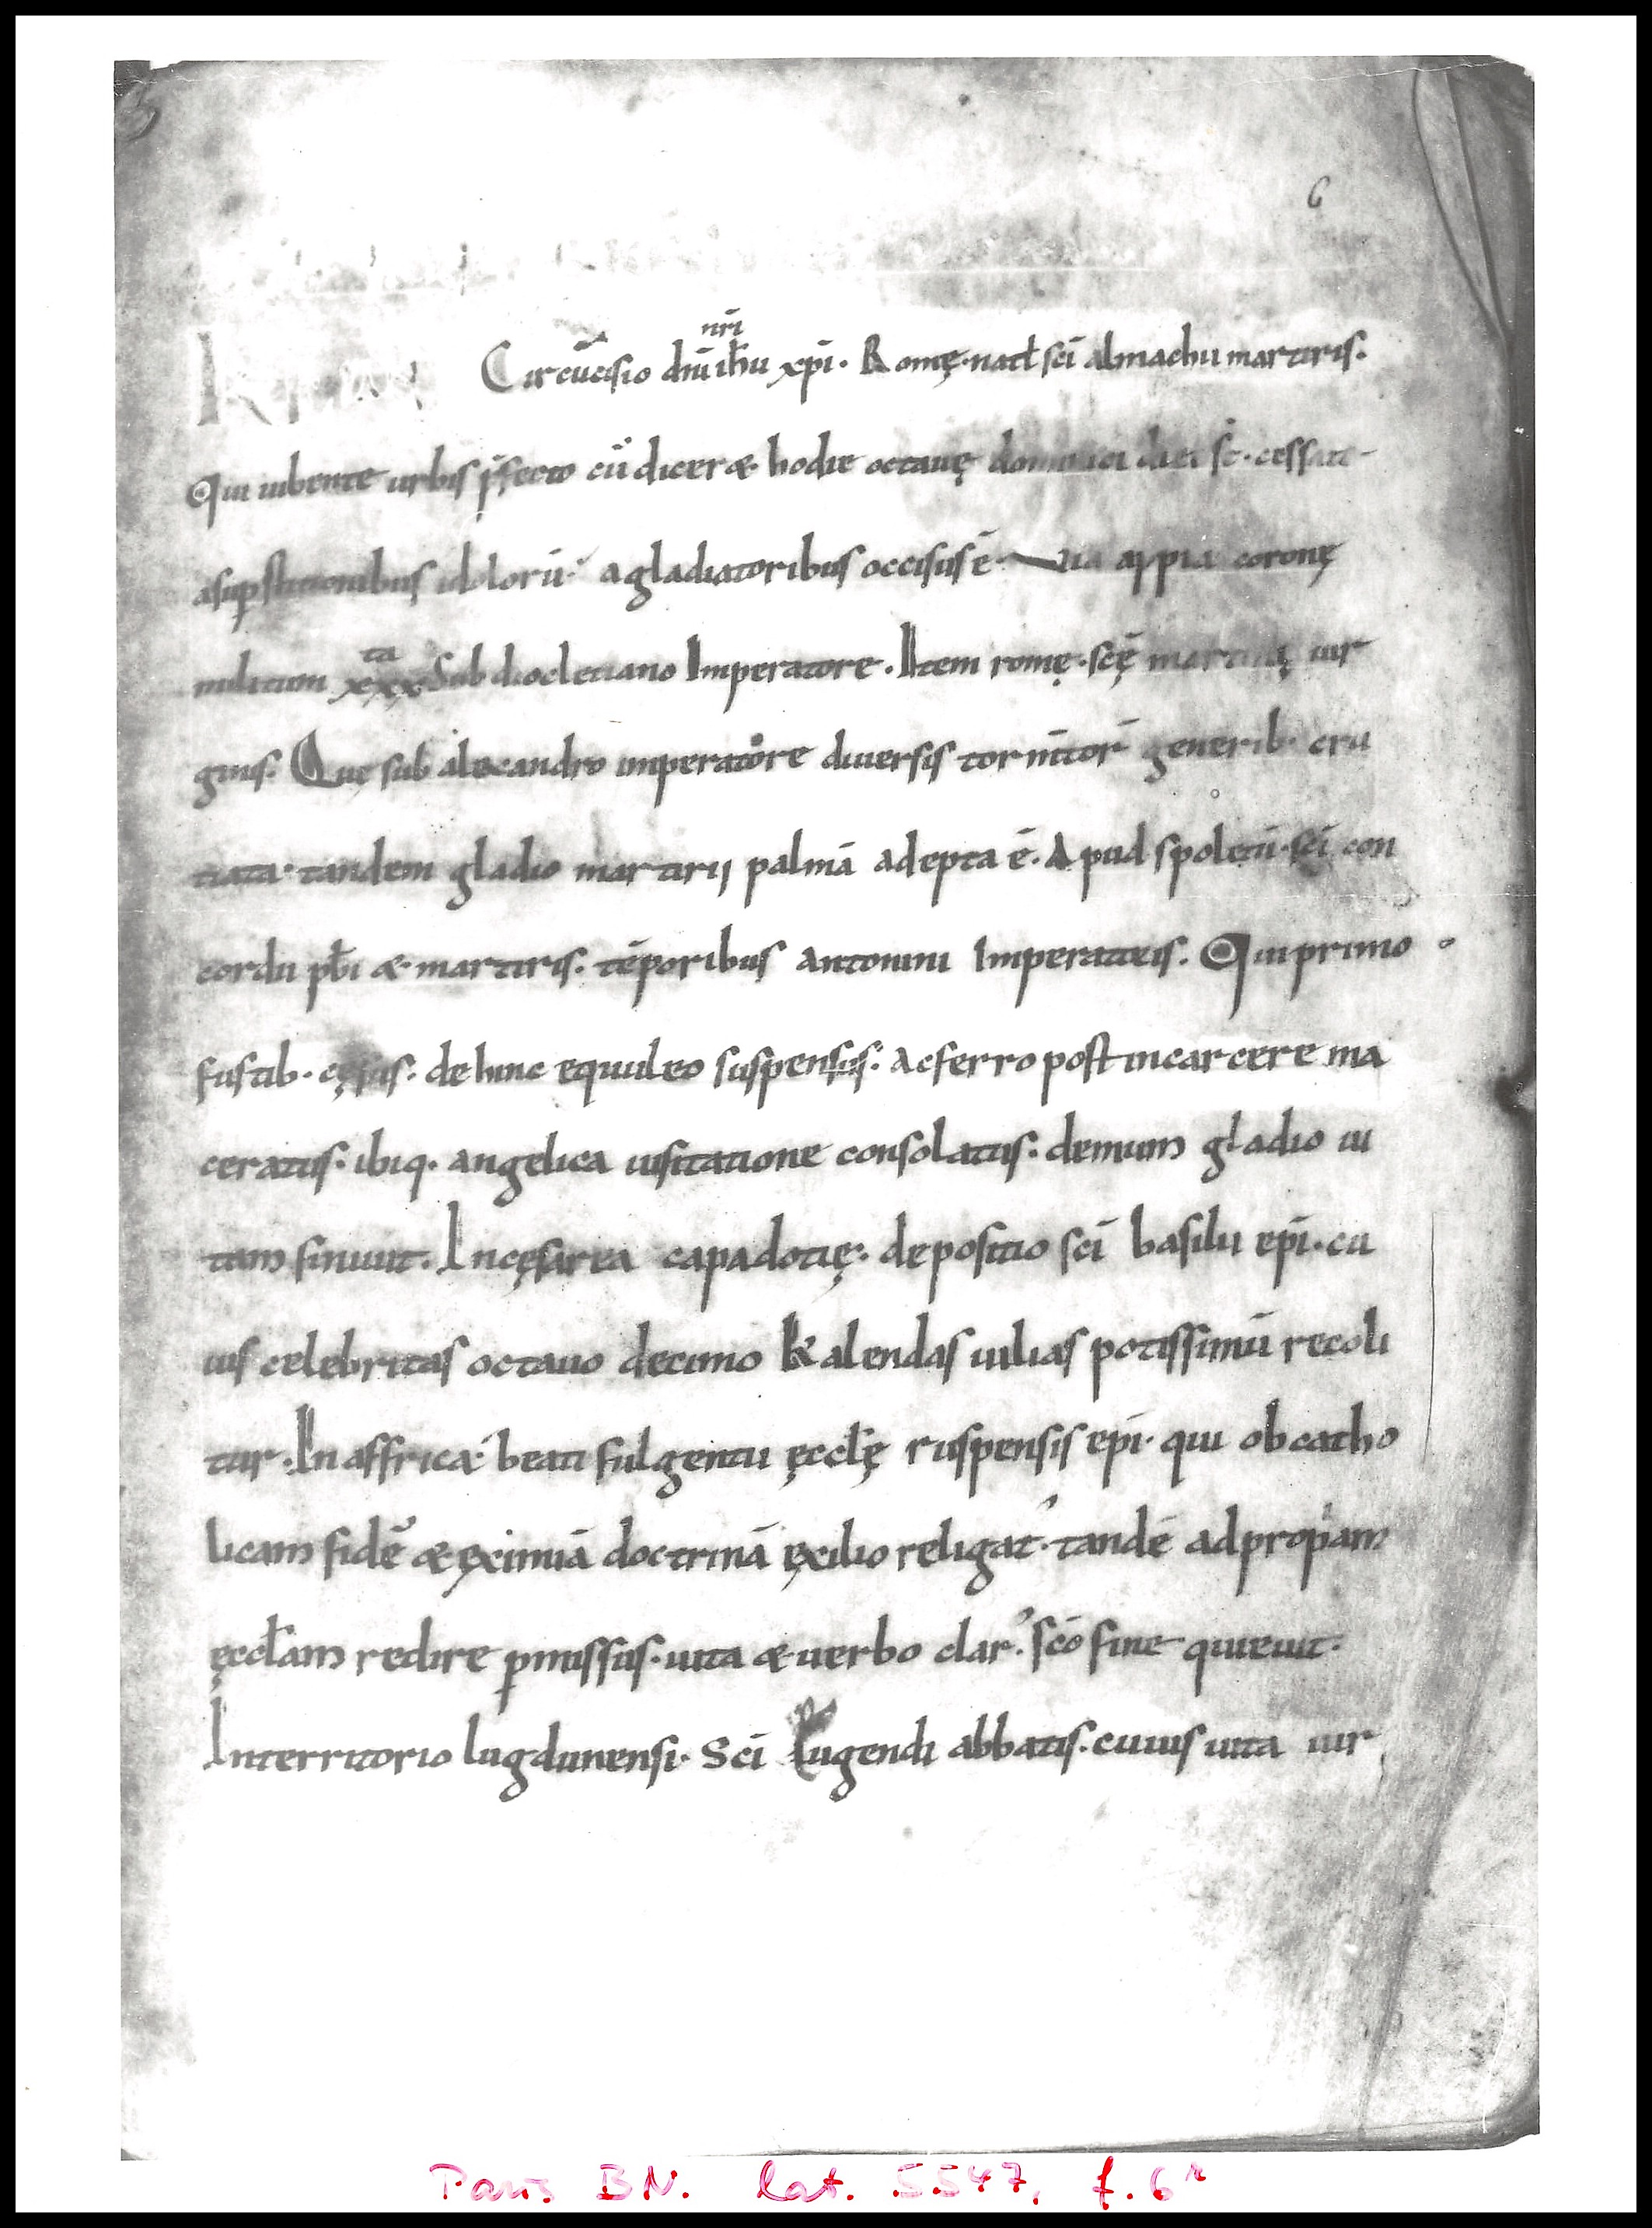 6
nr̄i
Circūcisio dn̄i ih̄u xp̄i. Romę. natl̄ sc̄i almachii martiris.
Qui iubente urbis p̄fecto cū diceret. hodie octauę dominici diei st̄. cessate
a sup̱stitionibus idolorū. a gladiatoribus occisus ē. Via appia coronę
ta
militum xxx Sub diocletiano Imperatore. Item romę. scę̄ martinę uir
ginis. Quę sub alexandro imperatore diuersis torm̄tor̄ generib. cru
tiata. tandem gladio martirij palmā adepta ē. Apud spoletū. sc̄i con
cordii pb̄i et martiris. tēporibus antonini Imperatoris. Qui primo
fustib. cęsus. dehinc equuleo suspensus. ac ferro post in carcere ma
ceratus. ibiq. angelica uisitatione consolatus. demum gladio ui
tam finiuit. In cęsarea capadotię. depositio sc̄i basilii ep̄i. cu
ius celebritas octauo decimo Kalendas iulias potissimū recoli
tur. In affrica. beati fulgentii ęccl̄ę ruspensis ep̄i. qui ob catho
licam fidē et ęximiā doctrinā ęxilio religat'. tandē ad propriam
ęccl̄am redire p̱missus. uita et uerbo clar'. sc̄o fine quieuit.
In territorio lugdunensi. Sc̄i Eugendi abbatis. cuius uita uir
Paris BN. lat. 5547, f. 6r